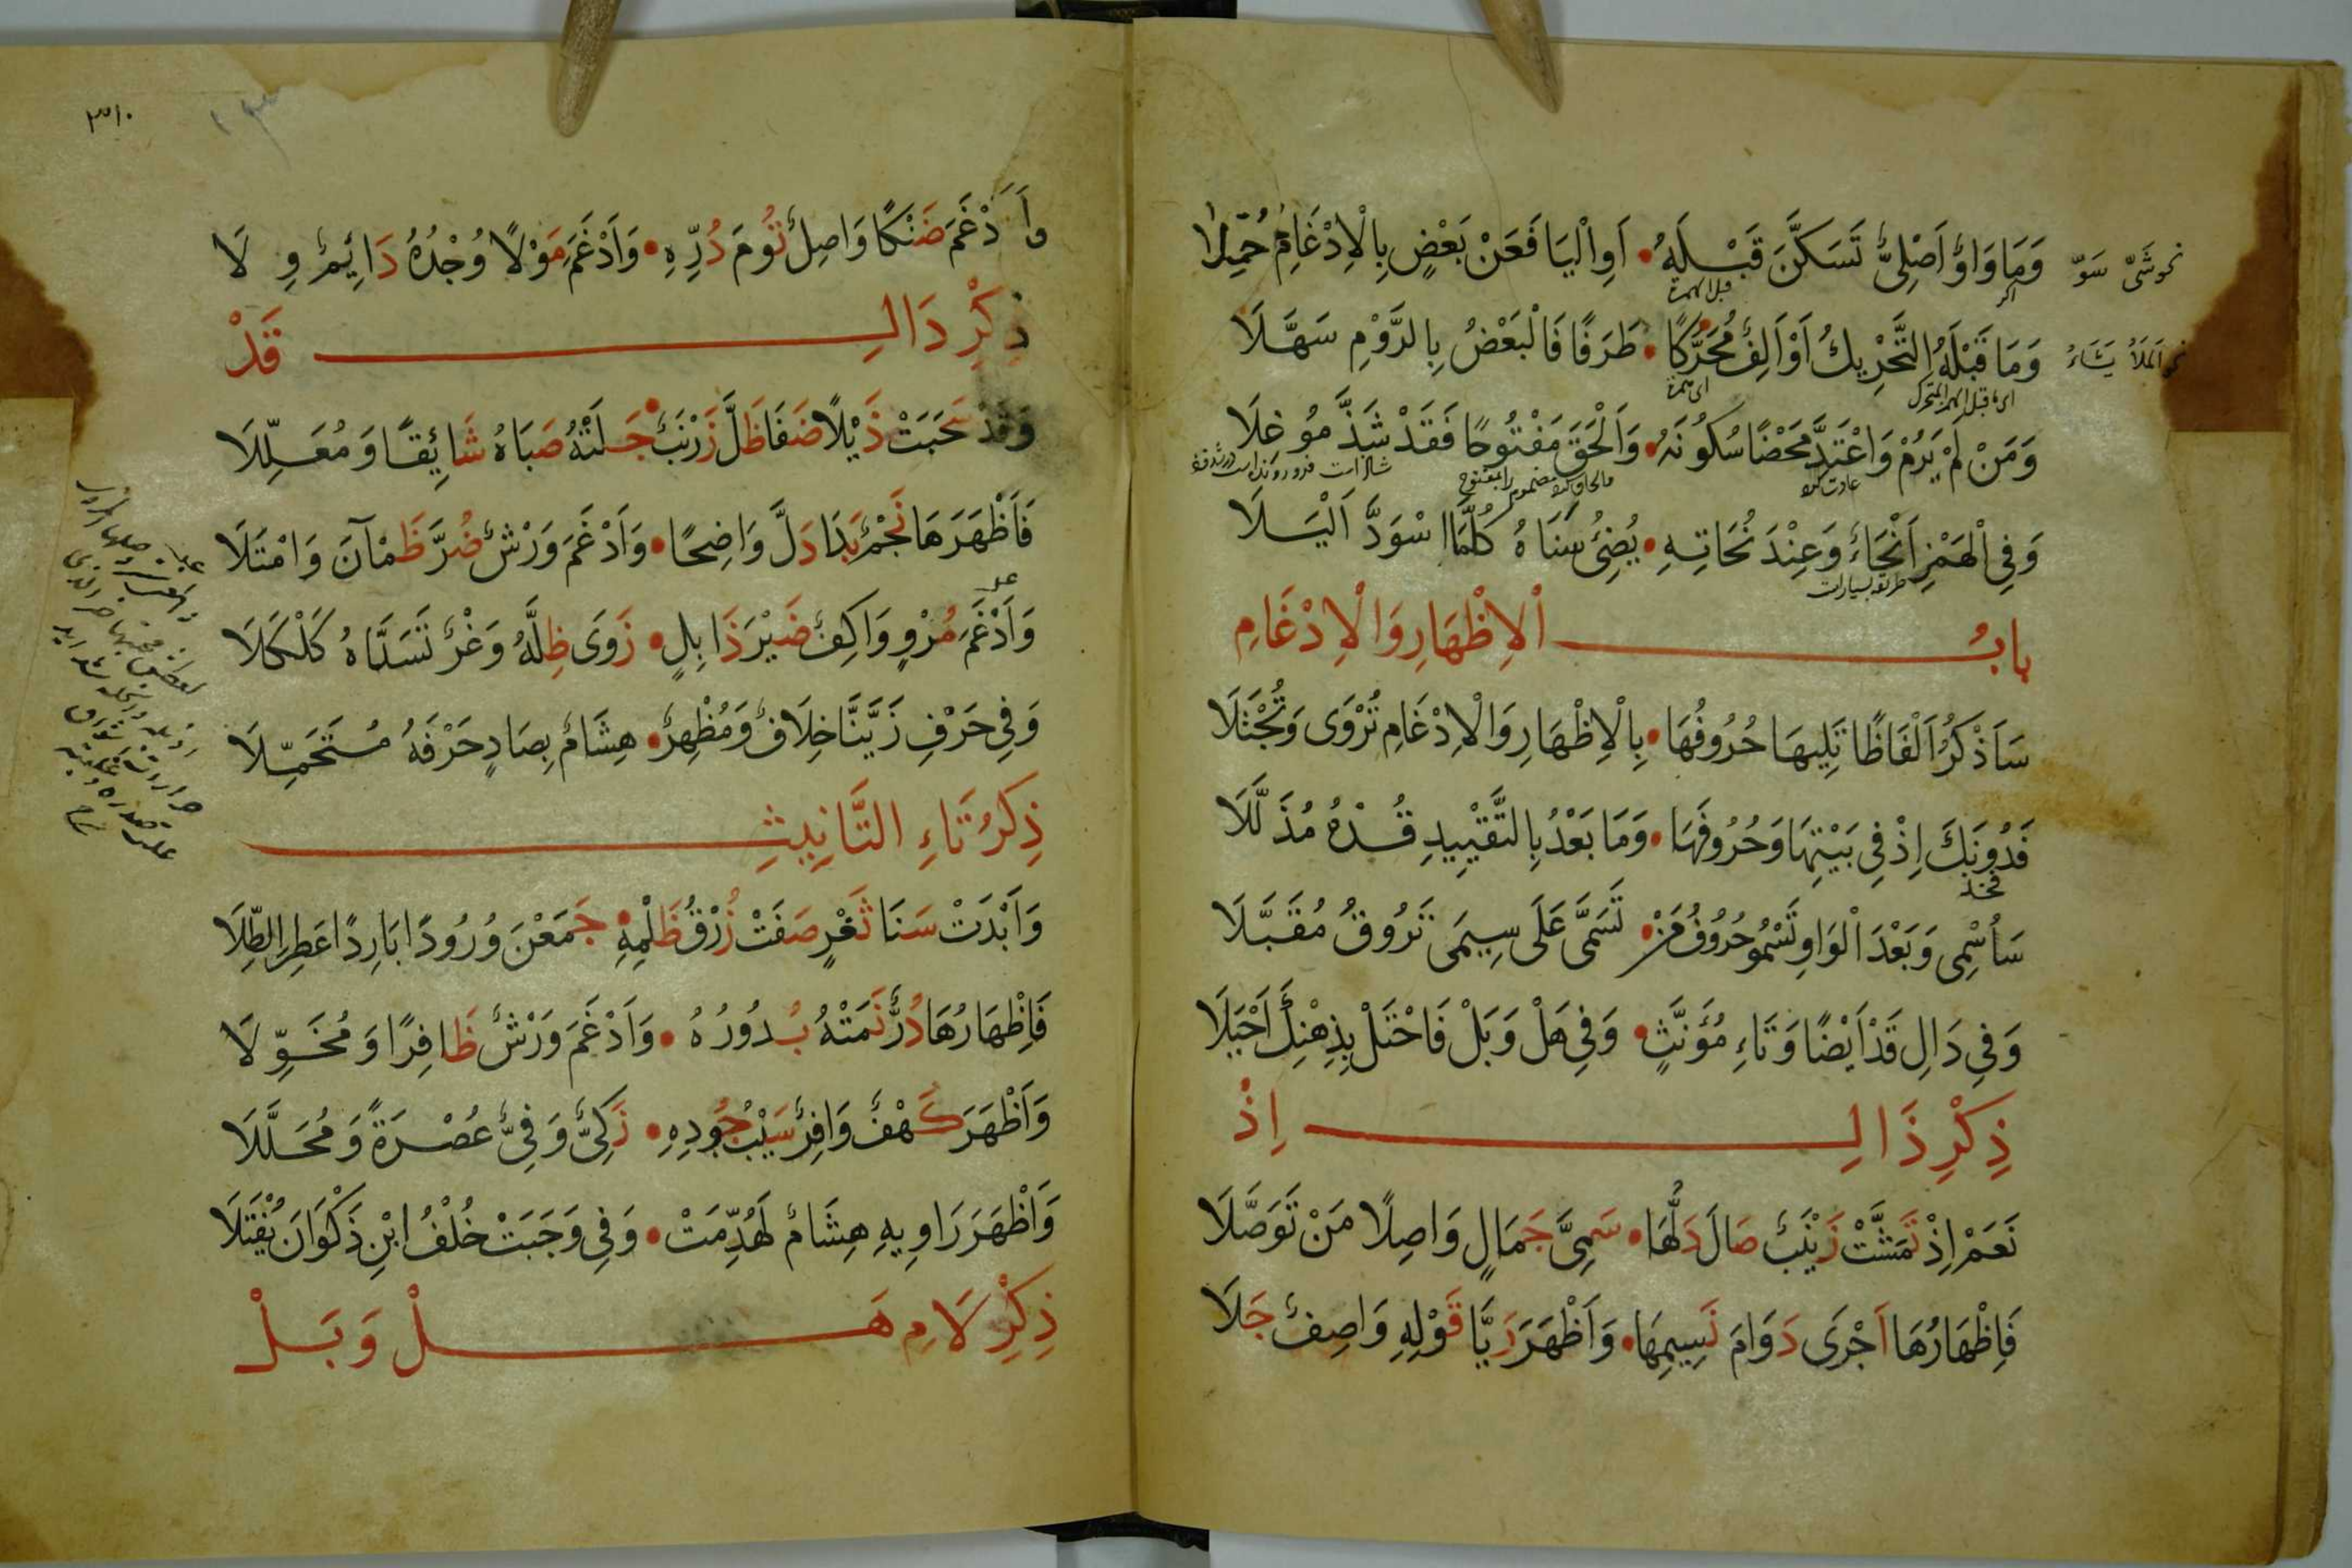 وَمَا وَاوٌ اَصْلِيٌّ تَسَكَّنَ قَبْلَهُ • اَوِ الْيَا فَعَنْ بَعْضٍ بِالْاِدْغَامِ حُمِّلَا
نحو شَىّ سَوّ
قبل الهمزة
وَمَا قَبْلَهُ التَّحْرِيكُ اَوْ اَلِفٌ مُحَرَّكًا • طَرَفًا فَالْبَعْضُ بِالرَّوْمِ سَهَّلَا
نحو اَلمَلَأُ يَشَاءُ
وَمَنْ لَمْ يَرُمْ وَاعْتَدَّ مَحْضًا سُكُونَهُ • وَاَلْحَقَ مَفْتُوحًا فَقَدْ شَذَّ مُوغِلَا
وَفِي الْهَمْزِ اَنْحَاءٌ وَعِنْدَ نُحَاتِهِ • يُضِئُ سَنَاهُ كُلَّمَا اسْوَدَّ اَلْيَلَا
بابُ اْلاِظْهَارِ وَالْاِدْغَامِ
سَاَذْكُرُ اَلْفَاظًا تَلِيهَا حُرُوفُهَا • بِالْاِظْهَارِ وَالْاِدْغَامِ تُرْوَى وَتُجْتَلَا
فَدُونَكَ اِذْ فِي بَيْتِهَا وَحُرُوفَهَا • وَمَا بَعْدُ بِالتَّقْيِيدِ قُدْهُ مُذَلَّلَا
فخذ
سَاُسْمِى وَبَعْدَ الْوَاوِ تَسْمُو حُرُوفُ مَنْ • تَسَمَّى عَلَى سِيمَى تَرُوقُ مُقَبَّلَا
وَفِي دَالِ قَدْ اَيْضًا وَتَاءِ مُؤَنَّثٍ • وَفِي هَلْ وَبَلْ فَاحْتَلْ بِذِهْنِكَ اَحْيَلَا
ذِكْرِ ذَالِ اِذْ
نَعَمْ اِذْ تَمَشَّتْ زَيْنَبٌ صَالَ دَلُّهَا • سَمِيَّ جَمَالٍ وَاصِلًا مَنْ تَوَصَّلَا
فَاِظْهَارُهَا اَجْرَى دَوَامَ نَسِيمِهَا • وَاَظْهَرَ رَيَّا قَوْلِهِ وَاصِفٌ جَلَا
٣١٠
وَاَدْغَمَ ضَنْكًا وَاصِلٌ تُومَ دُرِّهِ • وَاَدْغَمَ مَوْلًا وُجْدُهُ دَائِمٌ وِ لَا
ذِكْرِ دَالِ قَدْ
وَقَدْ سَحَبَتْ ذَيْلًا ضَفَا ظَلَّ زَرْنَبٌ • جَلَتْهُ صَبَاهُ شَائِقًا وَمُعَلِّلَا
فَاَظْهَرَهَا نَجْمٌ بَدَا دَلَّ وَاضِحًا • وَاَدْغَمَ وَرْشٌ ضُرَّ ظَمْآنَ وَامْتَلَا
وَاَدْغَمَ مُرْوٍ وَاكِفٌ ضَيْرَ ذَابِلٍ • زَوَى ظِلَّهُ وَغْرٌ تَسَدَّاهُ كَلْكَلَا
وَفِي حَرْفِ زَيَّنَّا خِلَافٌ وَمُظْهِرٌ • هِشَامٌ بِصَادٍ حَرْفَهُ مُتَحَمِّلَا
ذِكْرُ تَاءِ التَّانِيثِ
وَاَبْدَتْ سَنَا ثَغْرٍ صَفَتْ زُرْقُ ظَلْمِهِ • جَمَعْنَ وُرُودًا بَارِدًا عَطِرَ الطِّلَا
فَاِظْهَارُهَا دُرٌّ نَمَتْهُ بُدُورُهُ • وَاَدْغَمَ وَرْشٌ ظَافِرًا وَمُخَوِّلَا
وَاَظْهَرَ كَهْفٌ وَافِرٌ سَيْبُ جُودِهِ • زَكِيٌّ وَفِيٌّ عُصْرَةً وَمُحَلَّلَا
وَاَظْهَرَ رَاوِيهِ هِشَامٌ لَهُدِّمَتْ • وَفِي وَجَبَتْ خُلْفُ ابْنِ ذَكْوَانَ يُفْتَلَا
ذِكْرِ لَامِ هَلْ وَبَلْ